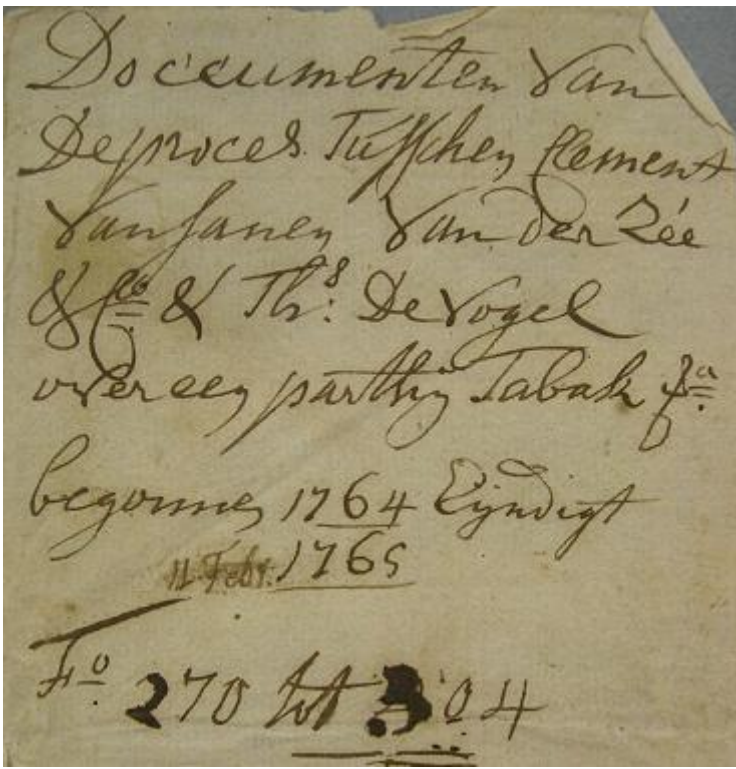 Doccumenten Van
De proces Tusschen Clement
Van Sanen Van der Zée
& Co & Ths: De Vogel
over een parthij Tabak
begonnen 1764 Eijndigt
11 Febr. 1765
Fo 270 tot 304